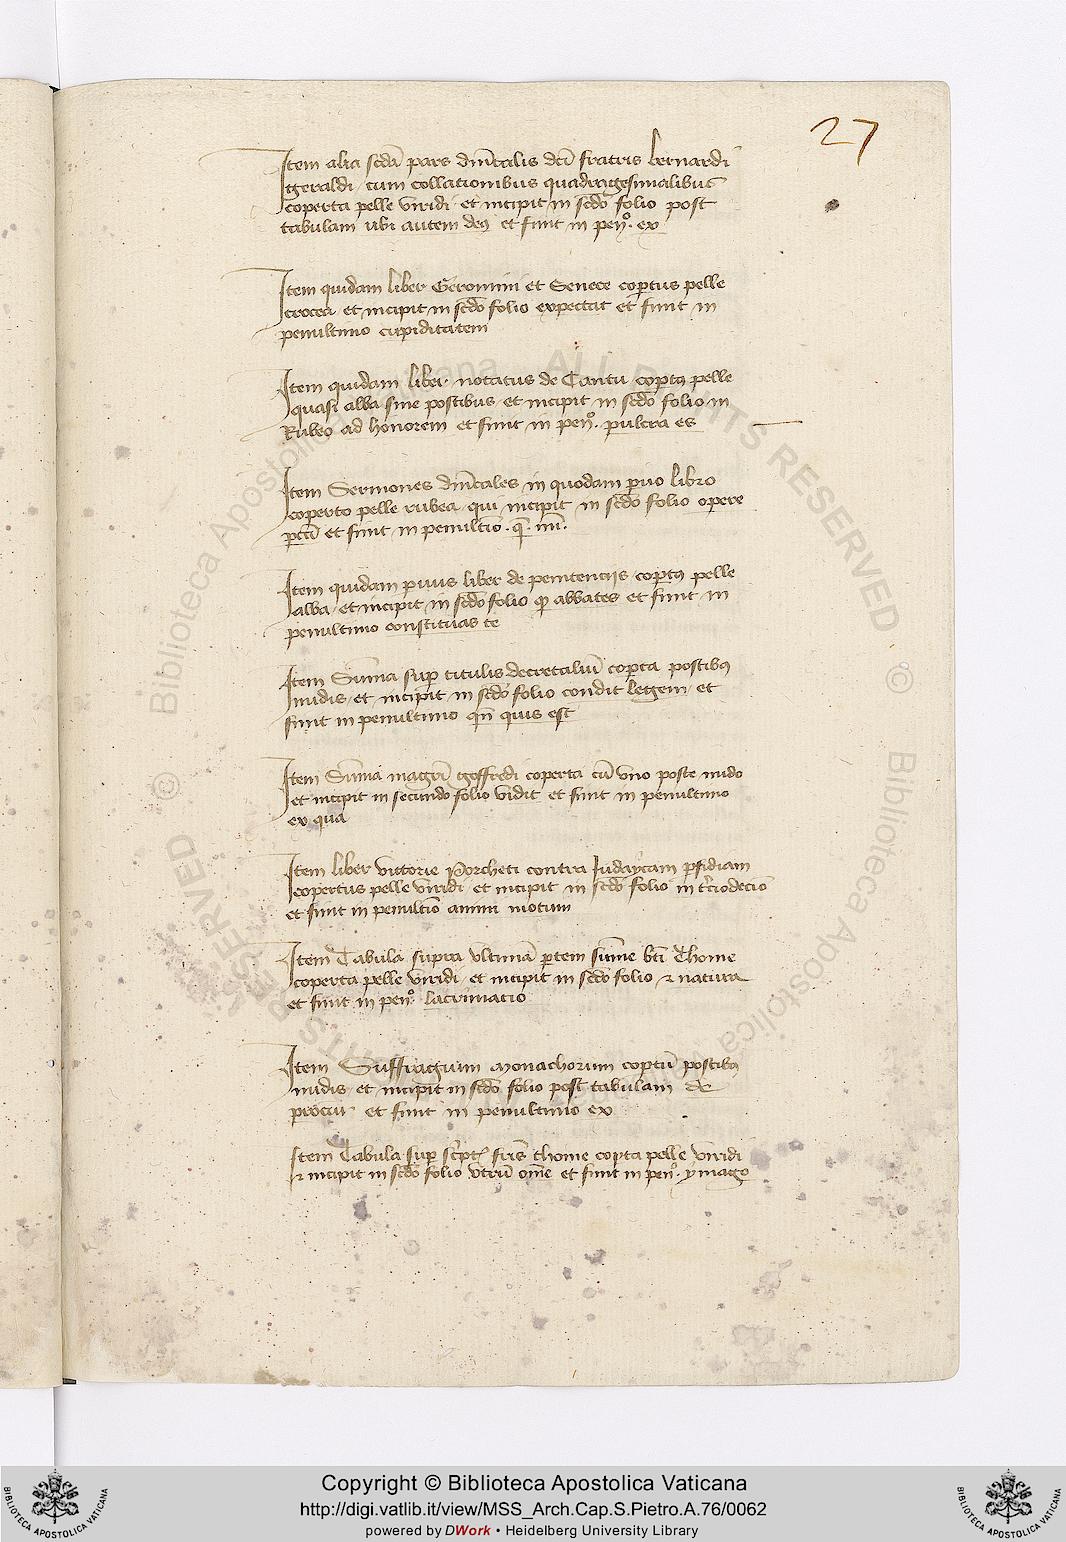 27
Item alia scda pars dnicalis dci fratris bernardi
geraldi cum collationibus quadragesimalibus
coperta pelle viridi et incipit in scdo folio post
tabulam ubi autem et finit in peno. ex
Item quidam liber Geronimi et Senece copertus pelle
crocea et incipit in scdo folio expectat et finit in
penultimo cupiditatem
Item quidam liber notatus de Cantu copertus pelle
quasi alba sine postibus et incipit in scdo folio in
Rubeo ad honorem et finit in peno. pulcra es
Item Sermones dnicales in quodam paruo libro
coperto pelle rubea qui incipit in scdo folio opere
et finit in penultio.
Item quidam paruus liber de penitentiis copertus pelle
alba et incipit in scdo folio abbates et finit in
penultimo constituas te
Item Suma super titulis decretaliu coperta postibus
nudis et incipit in scdo folio condit legem et
finit in penultimo qn quis est
Item Suma magri Goffredi coperta cu uno poste nudo
et incipit in secundo folio vidit et finit in penultimo
ex qua
Item liber victorie Porcheti contra Iudaycam perfidiam
copertus pelle viridi et incipit in scdo folio in
et finit in penultio animi motum
Item Tabula supra ultima partem sume bti Thome
coperta pelle viridi et incipit in scdo folio et natura
et finit in peno. lacrimatio
Item Suffragium monachorum copertum postibus
nudis et incipit in scdo folio post tabulam
et finit in penultimo ex
Item Tabula super fris thome coperta pelle viridi
et incipit in scdo folio utru ome et finit in peno. ymago
© Biblioteca Apostolica Vaticana ALL RIGHTS RESERVED
© Biblioteca Apostolica Vaticana ALL RIGHTS RESERVED
Copyright © Biblioteca Apostolica Vaticana
http://digi.vatlib.it/view/MSS_Arch.Cap.S.Pietro.A.76/0062
powered by DWork • Heidelberg University Library
BIBLIOTECA APOSTOLICA VATICANA
BIBLIOTECA APOSTOLICA VATICANA